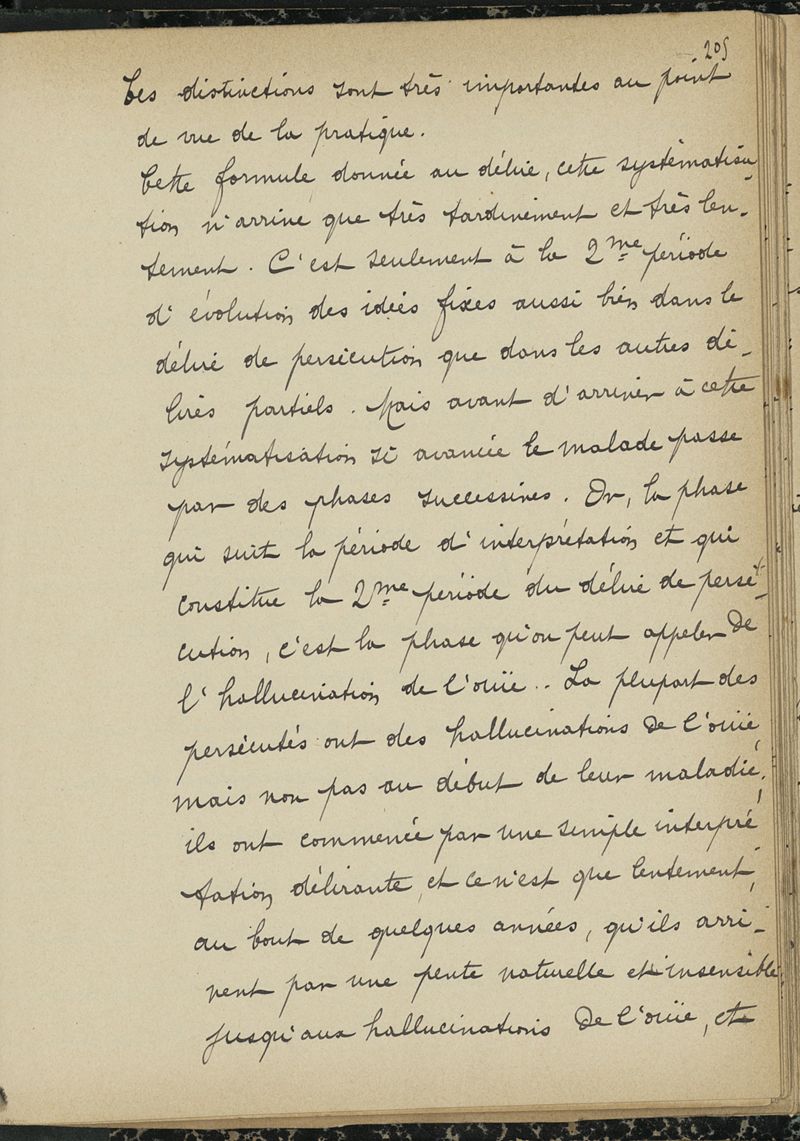 205
Ces distinctions sont très importantes au point
de vue de la pratique.
Cette formule donnée au délire, cette systématisa-
tion n'arrive que très tardivement et très len-
tement. C'est seulement à la 2me période
d'évolution des idées fixes aussi bien dans le
délire de persécution que dans les autres dé-
lires partiels. Mais avant d'arriver à cette
systématisation si avancée le malade passe
par des phases successives. Or, la phase
qui suit la période d'interprétation et qui
constitue la 2me période du délire de persé-
cution, c'est la phase qu'on peut appeler de
l'hallucination de l'ouïe.. La plupart des
persécutés ont des hallucinations de l'ouïe,
mais non pas au début de leur maladie,
ils ont commencé par une simple interpré-
tation délirante, et ce n'est que lentement,
au bout de quelques années, qu'ils arri-
vent par une pente naturelle et insensible
jusqu'aux hallucinations de l'ouïe, et